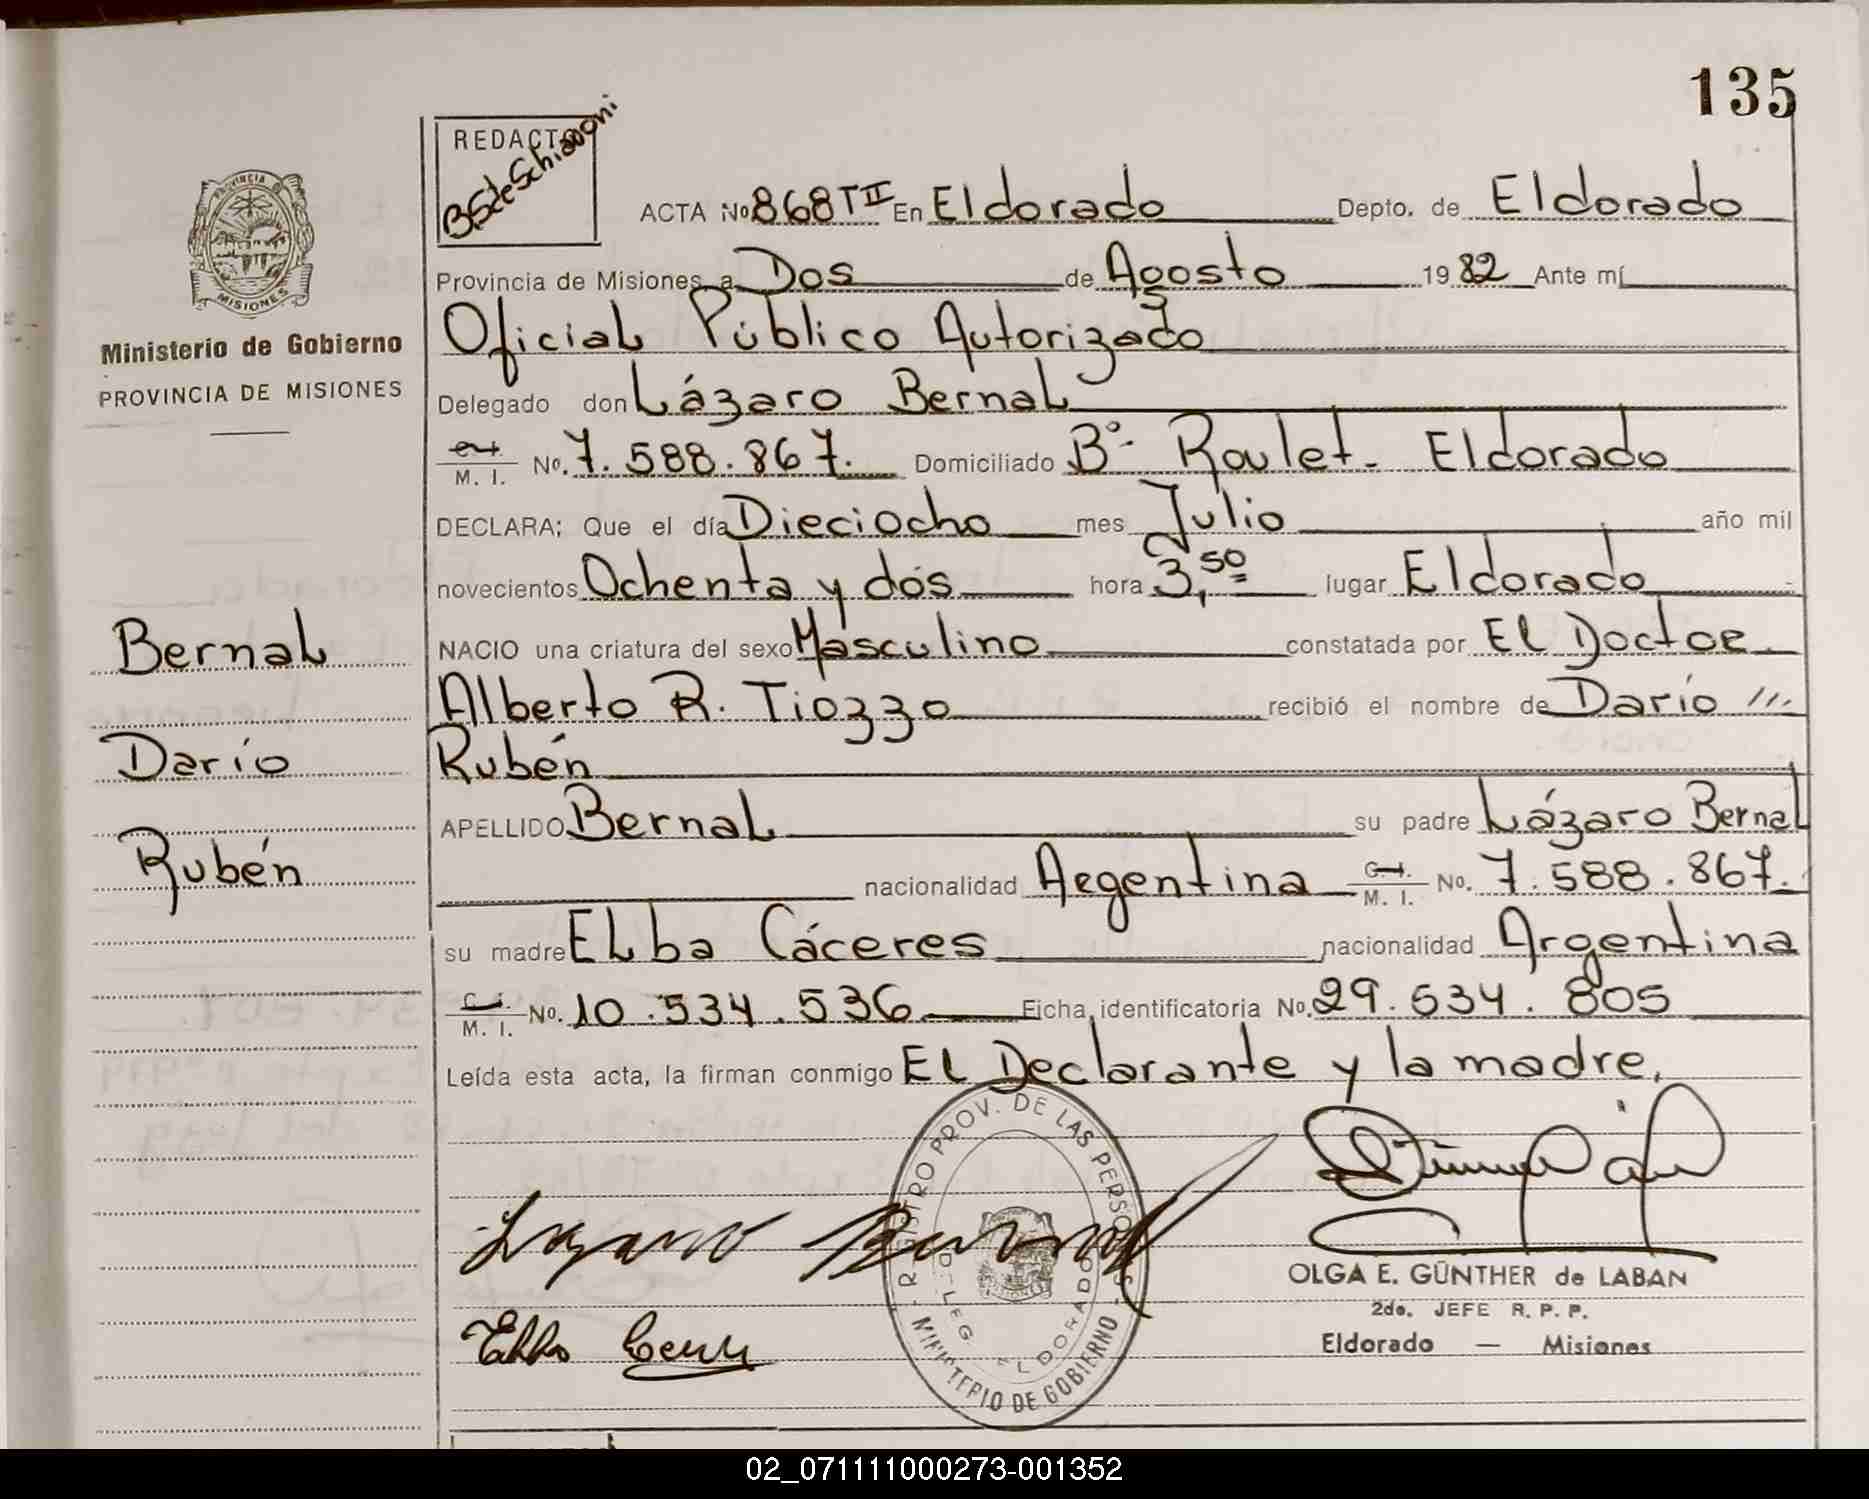 135
REDACTÓ
BSdeSchiavoni
ACTA No 868 T II En Eldorado Depto. de Eldorado
Provincia de Misiones a Dos de Agosto 1982 Ante mí
Oficial Público Autorizado
Delegado don Lázaro Bernal
M. I. No. 7.588.867. Domiciliado Bº- Roulet- Eldorado
DECLARA; Que el día Dieciocho mes Julio año mil
novecientos Ochenta y dos hora 3,50 lugar Eldorado
NACIO una criatura del sexo Masculino constatada por El Doctor
Alberto R. Tiozzo recibió el nombre de Darío ///.
Rubén
APELLIDO Bernal su padre Lázaro Bernal
nacionalidad Argentina C. I. M. I. No. 7.588.867.
su madre Elba Cáceres nacionalidad Argentina
C. I. M. I. No. 10.534.536 Ficha identificatoria No. 29.634.805
Leída esta acta, la firman conmigo El Declarante y la madre.
PROVINCIA DE MISIONES
Ministerio de Gobierno
PROVINCIA DE MISIONES
Bernal
Darío
Rubén
REGISTRO PROV. DE LAS PERSONAS
MINISTERIO DE GOBIERNO
DELEG. ELDORADO
Lazaro Bernal
Elba
OLGA E. GÜNTHER de LABAN
2do. JEFE R. P. P.
Eldorado — Misiones
02_071111000273-001352